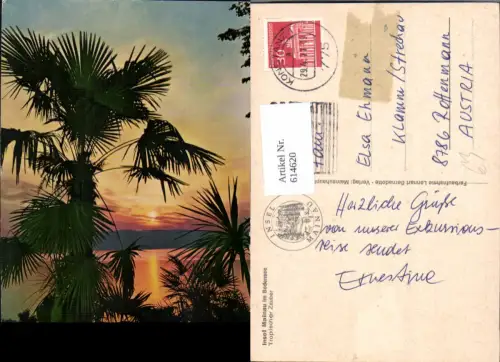 30
KON
29.
775
Artikel Nr.
614620
Elsa Ehmann
Klamm/Strechau
8786 Rottenmann
AUSTRIA
Farbaufnahme Lennart Bernadotte - Verlag: Mainau
INSEL
MAINAU
Herzliche Grüße
von unserer Exkursions-
reise sendet
Ernestine
Insel Mainau im Bodensee
Tropischer Zauber